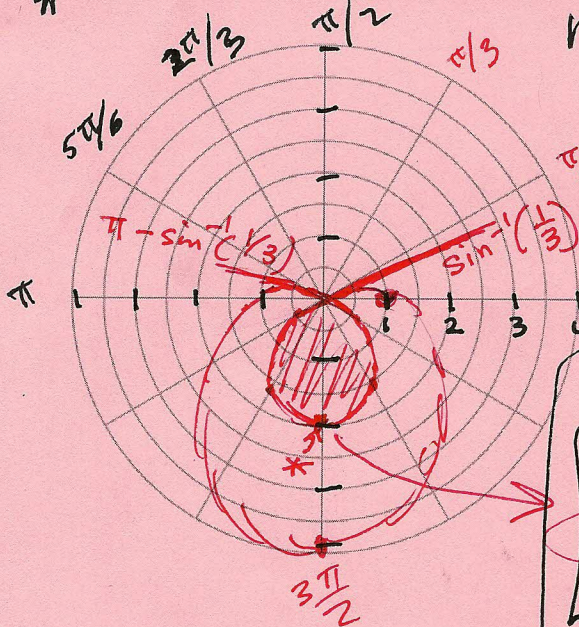 π/2
2π/3
π/3
5π/6
π
π - sin⁻¹(1/3)
sin⁻¹(1/3)
π
1
2
3
*
3π/2